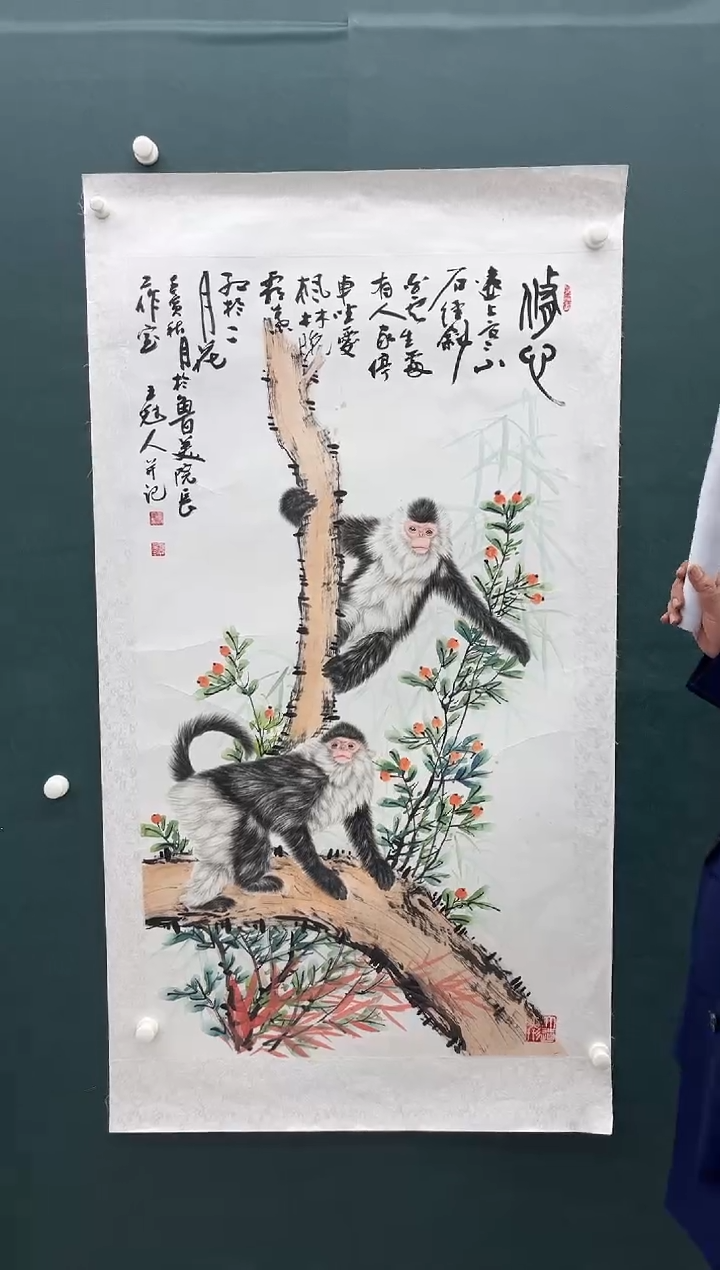 修心
遠上寒山
石徑斜
白云生處
有人家停
車坐愛
楓林晚
霜葉
红於二
月花
壬寅秋月於魯美院長
工作室 人并记